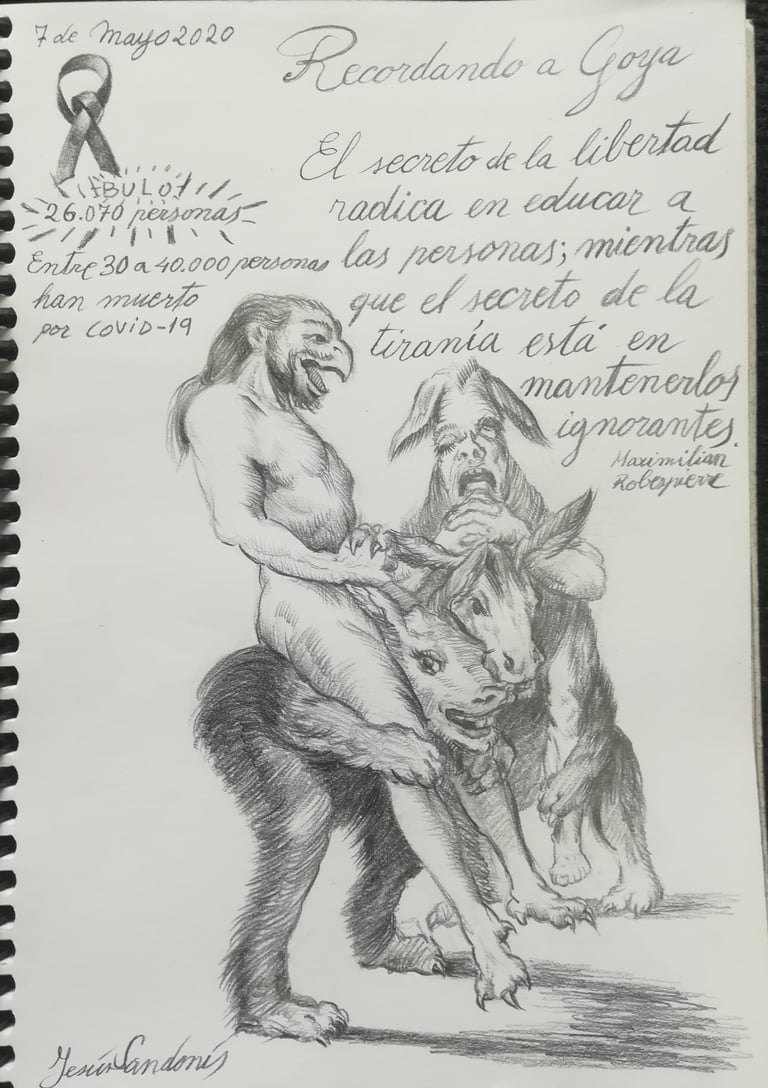 7 de Mayo 2020
Recordando a Goya
¡BULO!
26.070 personas
Entre 30 a 40.000 personas
han muerto
por COVID-19
El secreto de la libertad
radica en educar a
las personas; mientras
que el secreto de la
tiranía está en
mantenerlos
ignorantes.
Maximilian
Robespierre
Jesús Sandonís